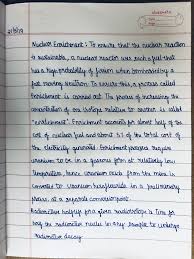 Nuclear Enrichment : To ensure that the nuclear reaction
is sustainable, a nuclear reactor uses such a fuel that
has a high probability of fission when bombarded by a
fast moving Neutron. To ensure this a process called
Enrichment is carried out. The process of increasing the
concentration of one isotope relative to another is called
"enrichment". Enrichment accounts for almost half of the
cost of nuclear fuel and about 5% of the total cost
of the electricity generated. Enrichment process require
uranium to be in a gaseous form at relatively low
temperature, hence uranium oxide from the mine is
converted to Uranium hexafluoride in a preliminary
process, at a separate conversion plant.
Radioactive half-life for a given radioisotope is time for
half the radioactive nuclei in any sample to undergo
radioactive decay.